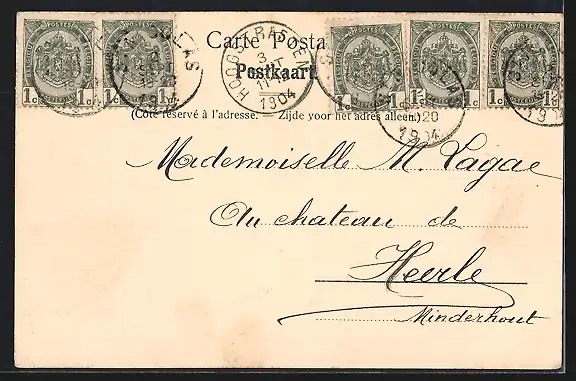 Carte Posta
Postkaart
(Côté réservé à l'adresse. Zijde voor het adres alleen.)
POSTES
1c 1c
POSTES
1c 1c
POSTES
1c
POSTES
1c
POSTES
1c
HOOGSTRATEN
3
11
1904
20
1904
Mademoiselle M. Lagae
Au chateau de
Heerle
Minderhout